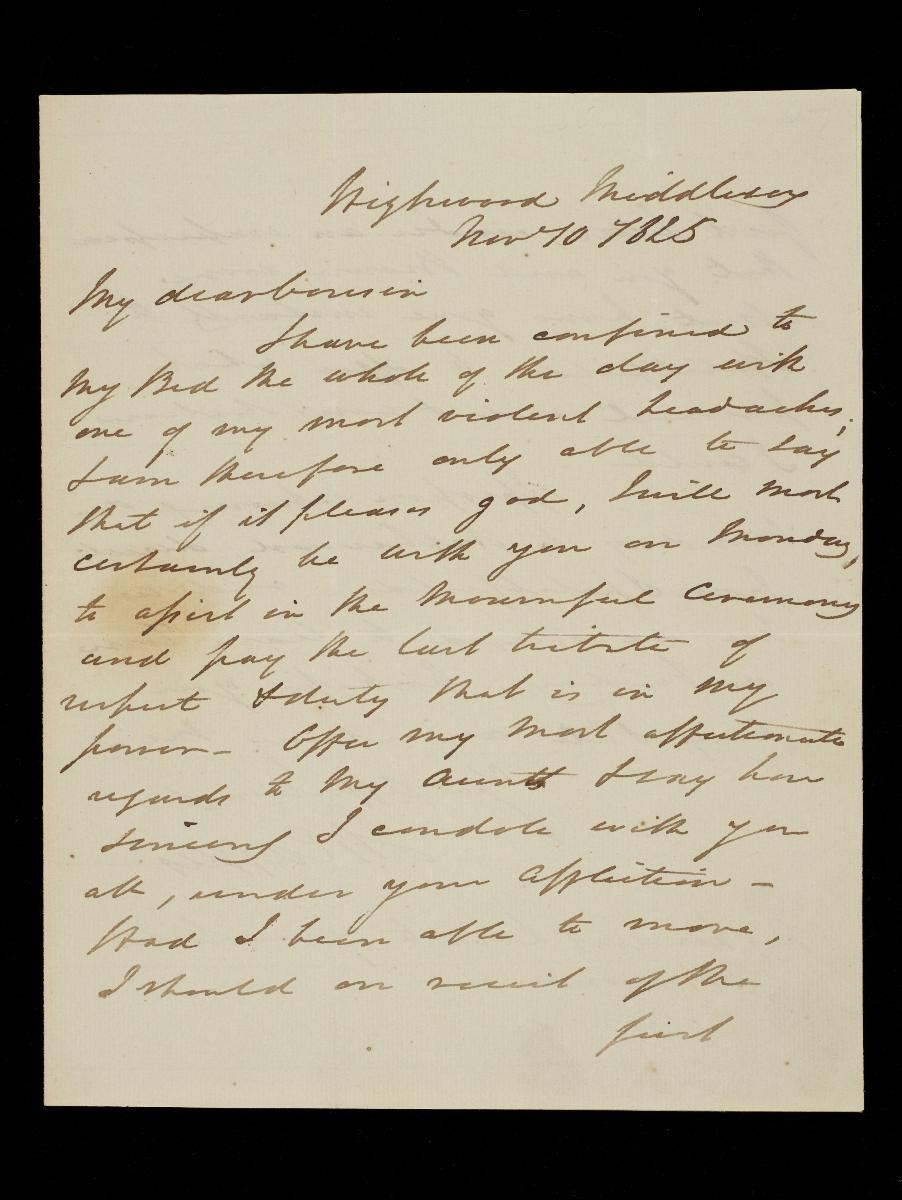 Highwood Middlesex
Novr 10 1825
My dear Cousin
I have been confined to
My Bed the whole of the day with
one of my most violent headaches,
I am therefore only able to say
that if it pleases god, I will most
certainly be with you on Monday,
to assist in the Mournful Ceremony
and pay the last tribute of
respect & duty that is in my
power - Offer my most affectionate
regards to My Aunt & say how
sincerely I condole with you
all, under your Affliction -
Had I been able to move,
I should on receit of the
first